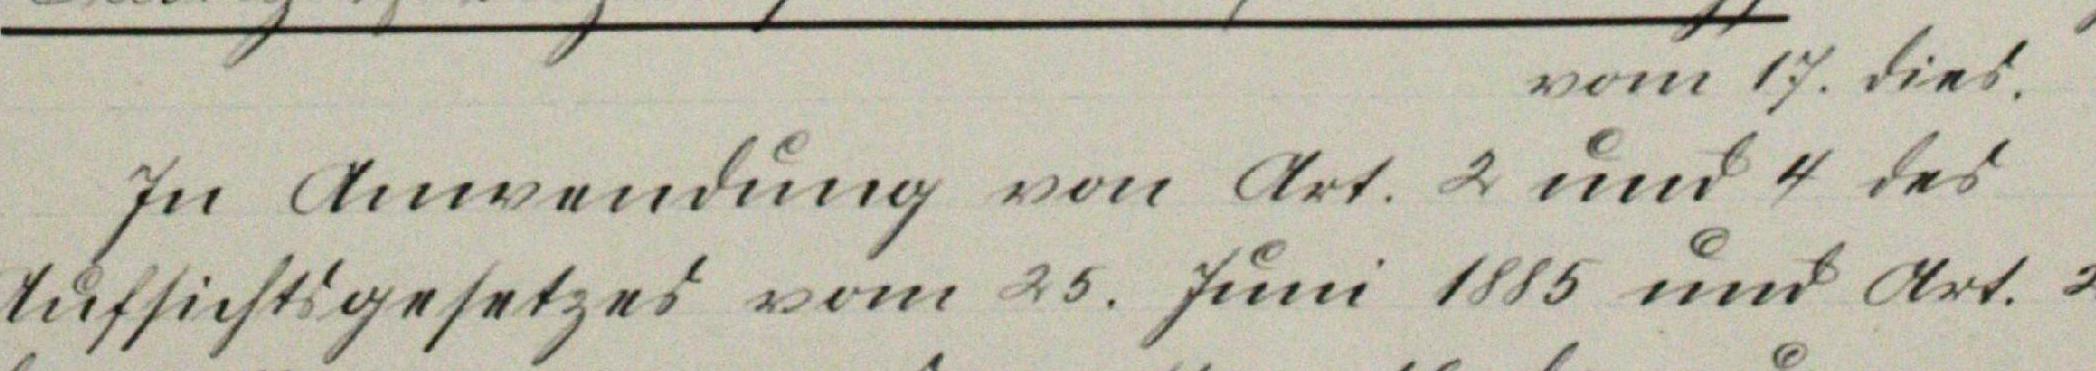 vom 17. dies.
In Anwendung von Art. 2 und 4 des
Aufsichtsgesetzes vom 25. Juni 1885 und Art.